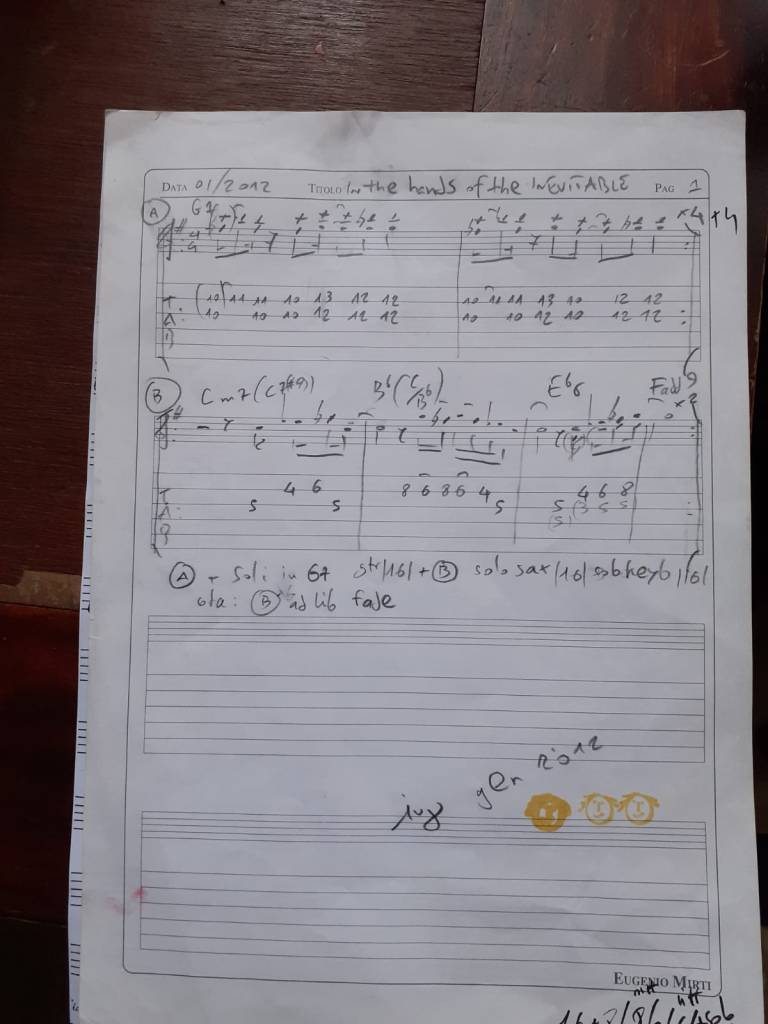 DATA 01/2012 TITOLO In the hands of the INEVITABLE PAG 1
A G7 x4 +4
4
4
T (10) 11 11 10 13 12 12 10 11 11 13 10 12 12
A 10 10 10 12 12 12 10 10 12 10 12 12
B Cm7 (C7(#9)) Bb (C/Bb) Eb6 Fadd9
x2
T 4 6 8 6 8 6 4 4 6 8
A 5 5 5 5 (3 5 5
B (5)
A + Soli in G7 str|16|+ B solo sax |16| solo keyb |16|
B ad lib fade
gen 2012
EUGENIO MIRTI